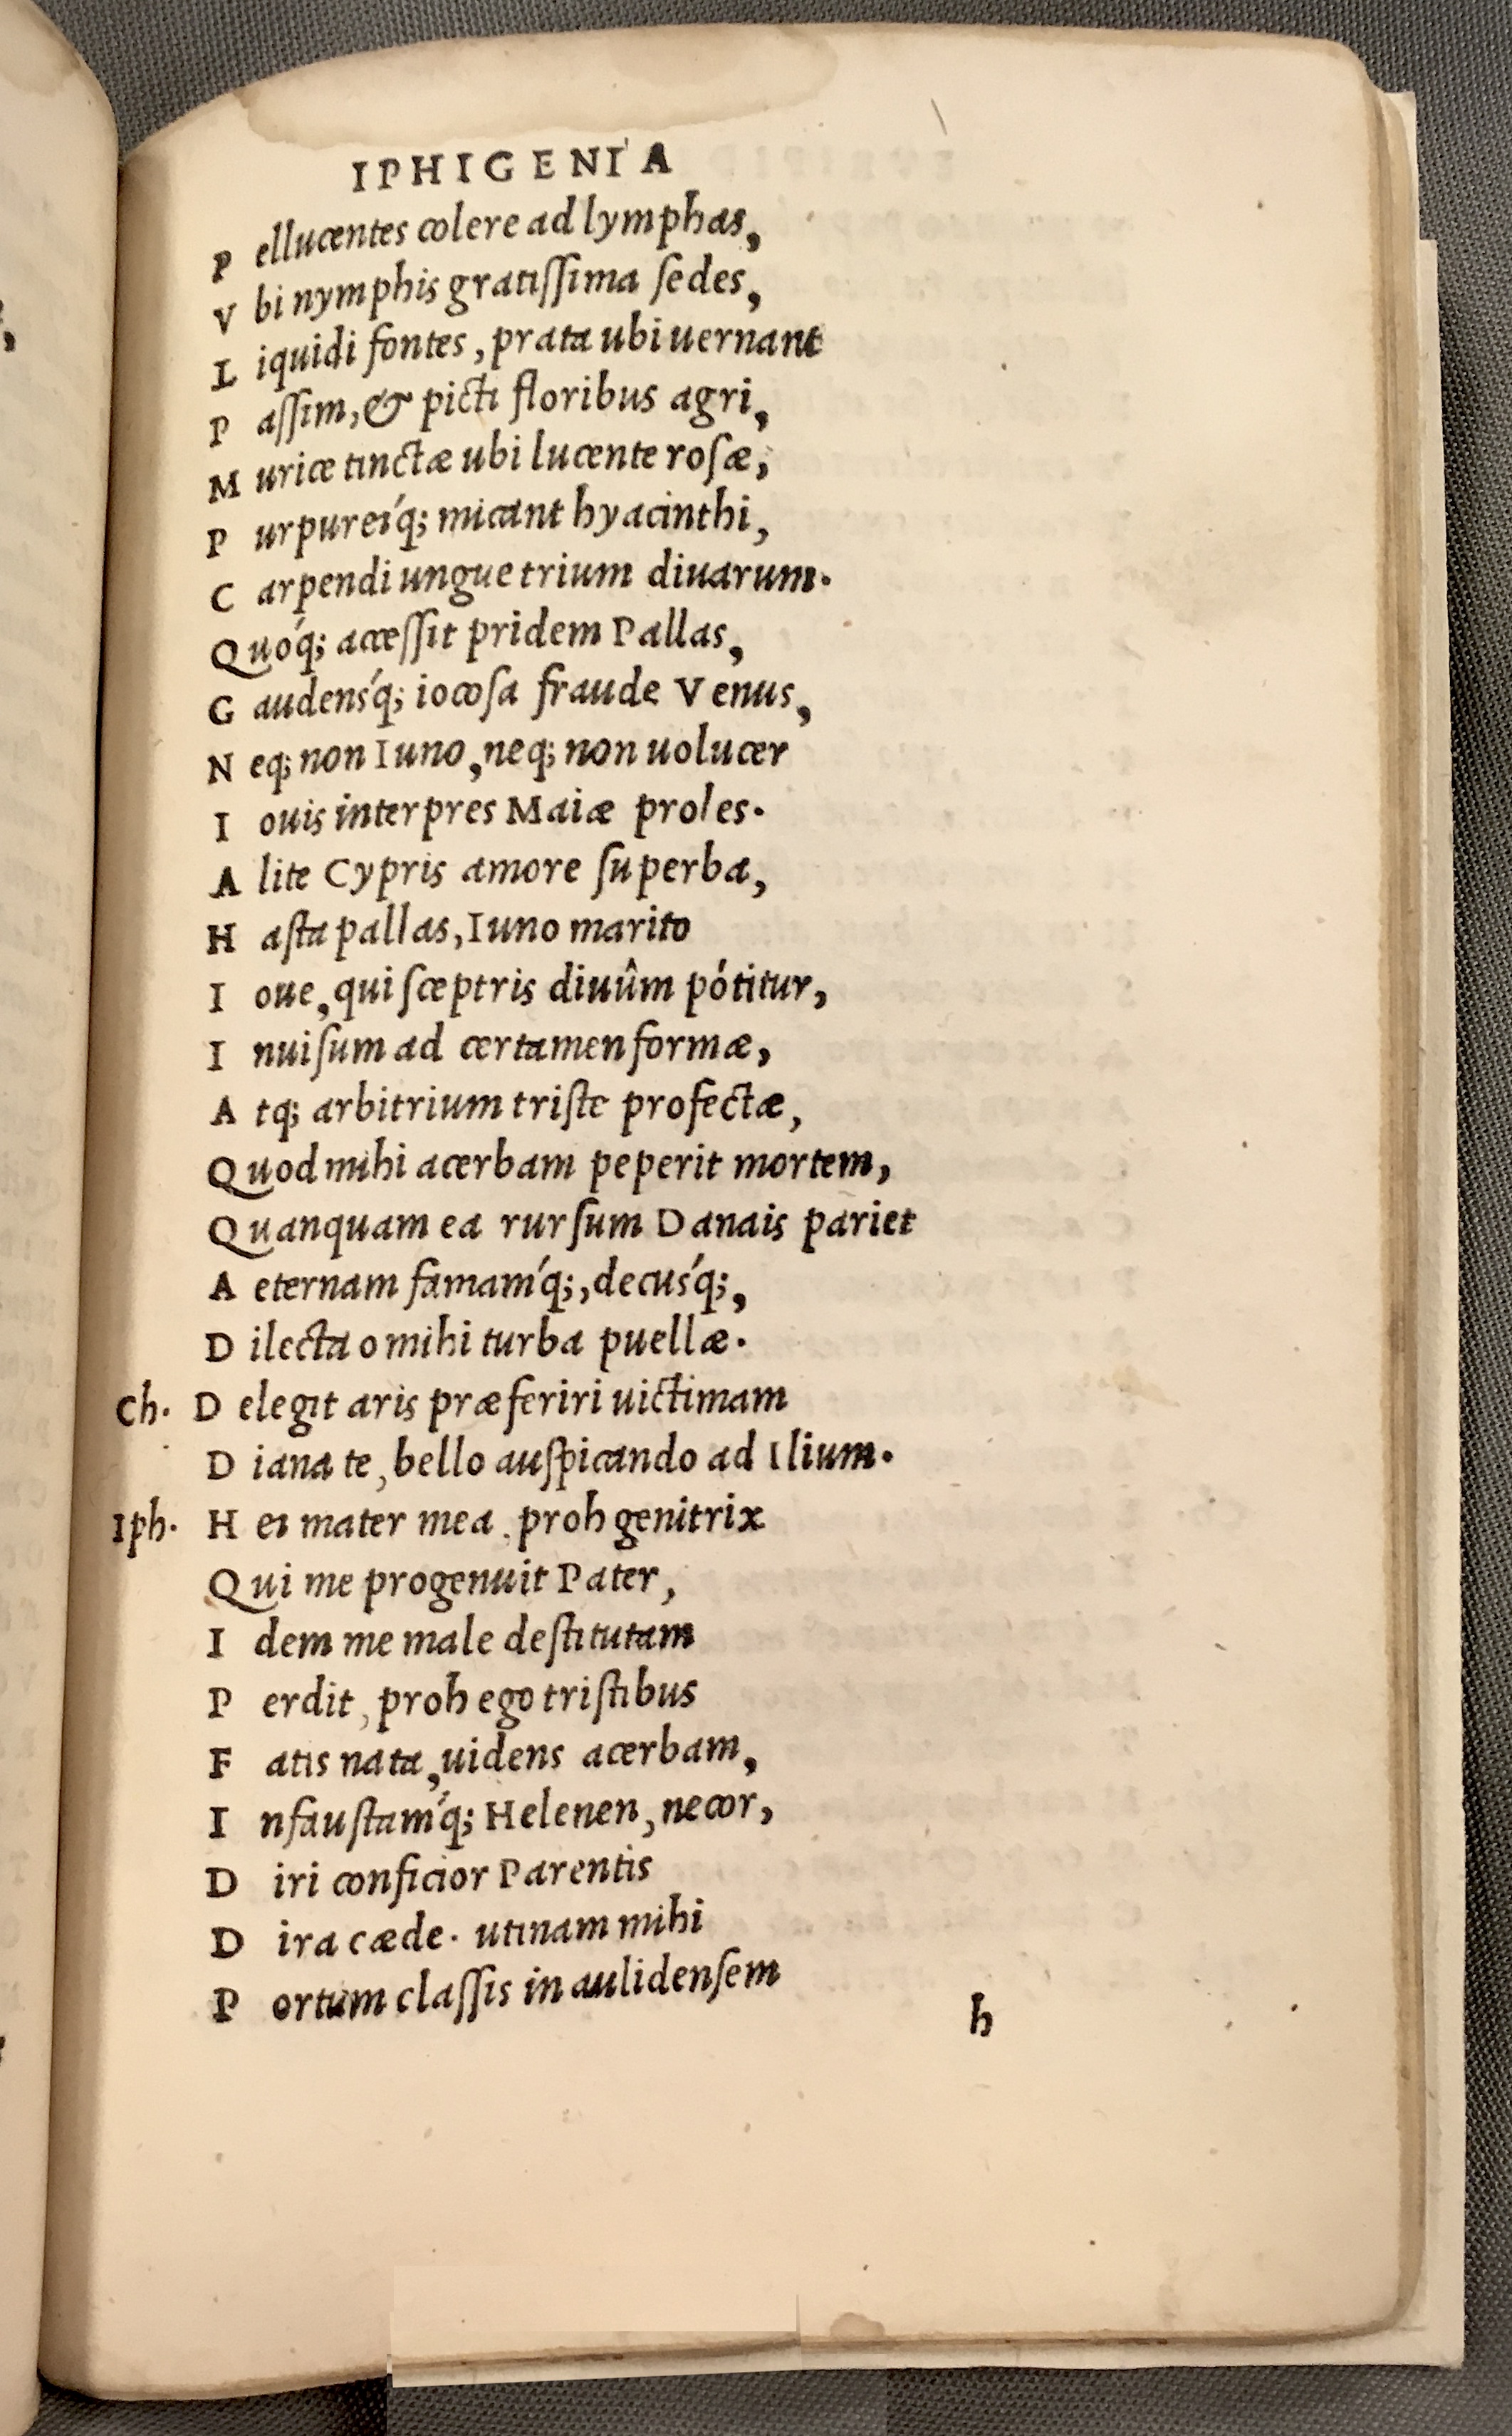 IPHIGENI'A
P ellucentes colere ad lymphas,
V bi nymphis gratiſſima ſedes,
L iquidi fontes, prata ubi uernant
P aſſim, & picti floribus agri,
M urice tinctæ ubi lucente roſæ,
P urpureíq; micant hyacinthi,
C arpendi ungue trium diuarum.
Q uóq; acceſſit pridem Pallas,
G audensq́; iocoſa fraude Venus,
N eq; non Iuno, neq; non uolucer
I ouis interpres Maiæ proles.
A lite Cypris amore ſuperba,
H aſta pallas, Iuno marito
I oue, qui ſceptris diuûm pótitur,
I nuiſum ad certamen formæ,
A tq; arbitrium triſte profectæ,
Q uod mihi acerbam peperit mortem,
Q uanquam ea rurſum Danais pariet
A eternam famamq́;, decusq́;,
D ilecta o mihi turba puellæ.
Ch. D elegit aris præferiri uictimam
D iana te, bello auſpicando ad Ilium.
Iph. H ei mater mea. proh genitrix
Q ui me progenuit Pater,
I dem me male deſtitutam
P erdit, proh ego triſtibus
F atis nata, uidens acerbam,
I nfauſtamq́; Helenen, necor,
D iri conficior Parentis
D ira cæde. utinam mihi
P ortum claſſis in aulidenſem
h